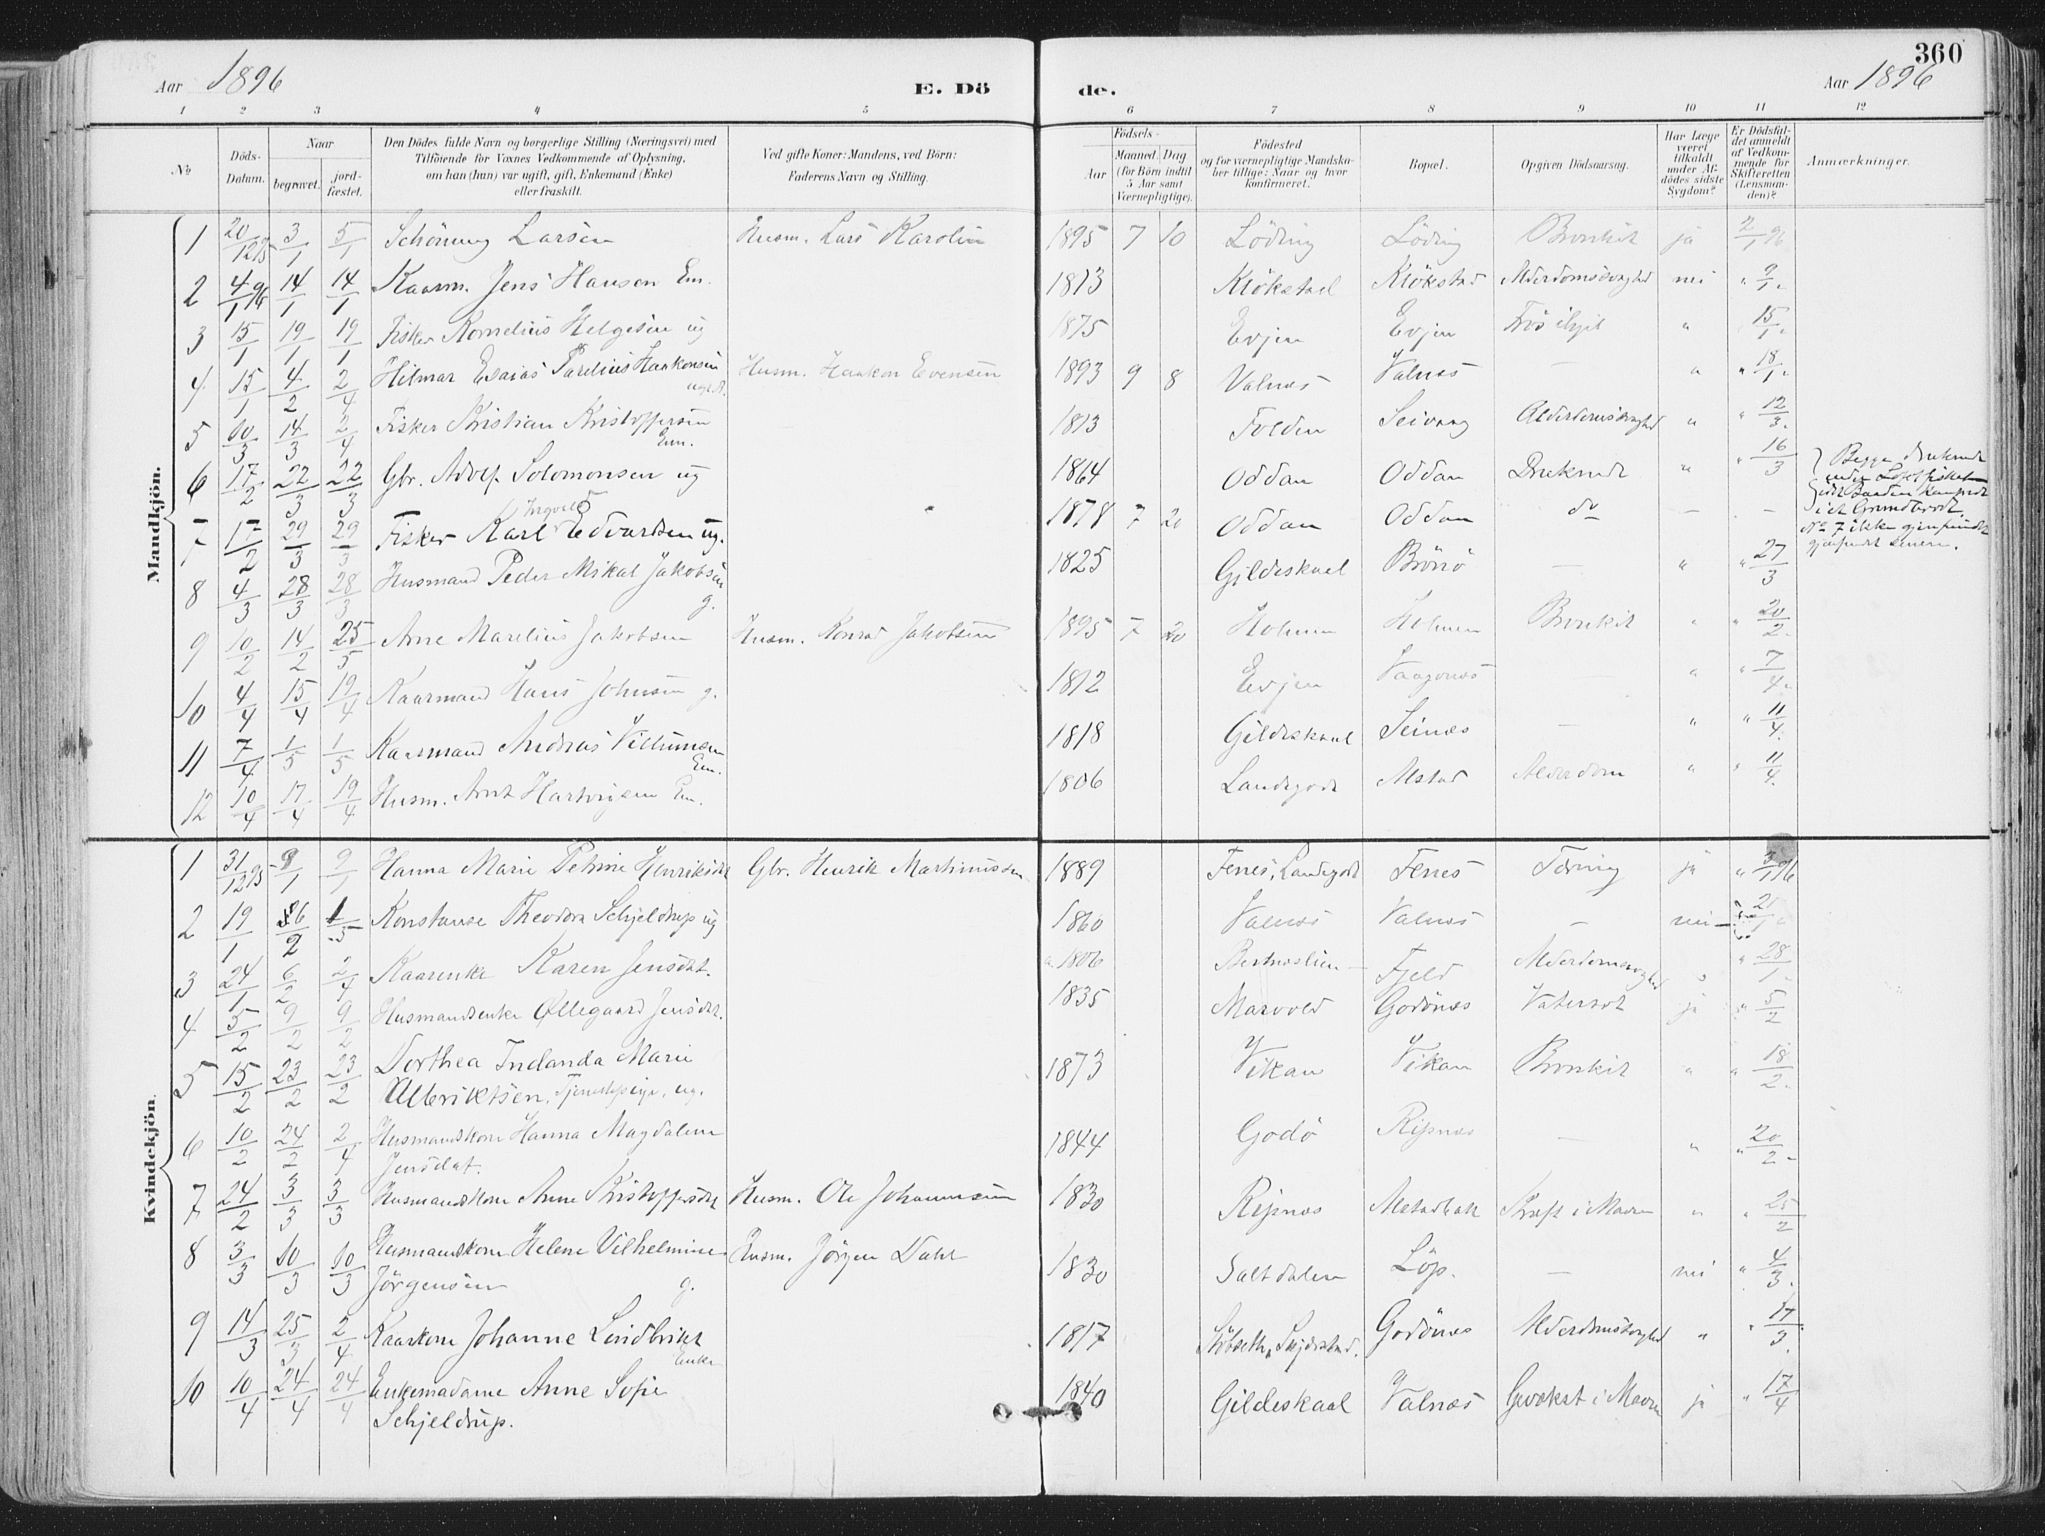 360
Aar 1896 E. Dö de. Aar 1896
1 2 3 4 5 6 7 8 9 10 11 12
No Döds-Datum. Naar begravet. jordfæstet. Den Dödes fulde Navn og borgerlige Stilling (Næringsvei) med Tilföiende for Voxnes Vedkommende af Oplysning, om han (hun) var ugift, gift, Enkemand (Enke) eller fraskilt. Ved gifte Koner: Mandens, ved Börn: Faderens Navn og Stilling. Födsels- Aar Maaned. Dag (for Börn indtil 5 Aar samt Værnepligtige). Födested og for værnepligtige Mandskaber tillige: Naar og hvor konfirmeret. Bopæl. Opgiven Dödsaarsag. Har Læge været tilkaldt under Afdödes sidste Sygdom? Er Dödsfaldet anmeldt af Vedkommende for Skifteretten (Lensmanden)? Anmærkninger.
Mandkjön.
1 20/12 95 3/1 5/1 Schöning Larsen Husm. Lars Karolin 1895 7 10 Löding Löding Bronkit ja 2/1 96
2 4/1 96 14/1 14/1 Kaarm. Jens Hansen Em. 1813 Klökstad Klökstad Alderdomssvaghed nei " 9/1
3 15/1 19/1 19/1 Fisker Kornelius Helgesen ug 1875 Evjen Evjen " 15/1
4 15/1 4/2 2/4 Hilmar Esaias Parelius Haakonsen Husm. Haakon Evensen 1893 9 8 Valnæs Valnæs — " " 18/1
5 10/3 14/3 2/4 Fisker Kristian Kristoffersen Em. 1813 Folden Seivaag Alderdomssvaghed " " 12/3
6 17/2 22/3 22/3 Gbr. Adolf Solomonsen ug 1864 Oddan Oddan Druknede " " 16/3 Begge druknede
7 17/2 29/3 29/3 Fisker Karl Ingvald Edvardsen ug. 1878 7 20 Oddan Oddan do — — No 7 ikke gjenfundet
8 4/3 28/3 28/3 Husmand Peder Mikal Jakobsen g. 1825 Gildeskaal — " " 27/3
9 10/2 14/2 25/5 Arne Marelius Jakobsen Husm. Konrad Jakobsen 1895 7 20 Holmen Holmen Bronkit " " 20/2
10 4/4 15/4 19/4 Kaarmand Hans Johnsen g. 1812 Evjen Vaagenæs — " " 7/4
11 7/4 1/5 1/5 Kaarmand Andreas Villumsen Em. 1818 Gildeskaal Seinæs — " " 11/4
12 10/4 17/4 19/4 Husm. Arnt Hartvigsen Em. 1806 Landegode Alstad Alderdom " " 11/4
Kvindekjön.
1 31/12 95 9/1 9/1 Hanna Marie Petrine Henriksdt Gbr. Henrik Martinussen 1889 Fenes, Landegode Fenes Tæring ja " 3/1 96
2 19/1 26/2 1/5 Konstanse Theodora Schjeldrup ug 1860 Valnæs Valnæs — nei
3 24/1 6/2 2/4 Kaarenke Karen Jensdt. 1806 Bertnæslien Fjeld Alderdomssvaghed " 28/1
4 5/2 9/2 9/2 Husmandsenke Øllegaard Jensdt. 1835 Marvold Godönæs Vatersot ja " 5/2
5 15/2 23/2 23/2 Dorthea Indianda Marie
Ulleriksen. Tjenestepige, ug. 1873 Vikan Vikan Bronkit " " 18/2
6 10/2 24/2 2/4 Husmandskone Hanna Magdalena
Jensdat. 1844 Godö Ripnæs — " " 20/2
7 24/2 3/3 3/3 Husmandskone Anne Kristoffersdt Husm. Ole Johannessen 1830 Ripnæs Alstadbakk Kræft i Maven " " 25/2
8 3/3 10/3 10/3 Husmandskone Helene Vilhelmine
Jörgensen g. Husm. Jörgen Dahl 1830 Saltdalen Löp. — nei " 4/3
9 14/3 25/3 2/4 Kaarkone Johanne Lindbrikt Enke 1817 Godönæs Alderdomssvaghed " " 17/3
10 10/4 24/4 24/4 Enkemadame Anne Sofie
Schjeldrup. 1840 Gildeskaal Valnæs Gevækst i Maven ja " 17/4